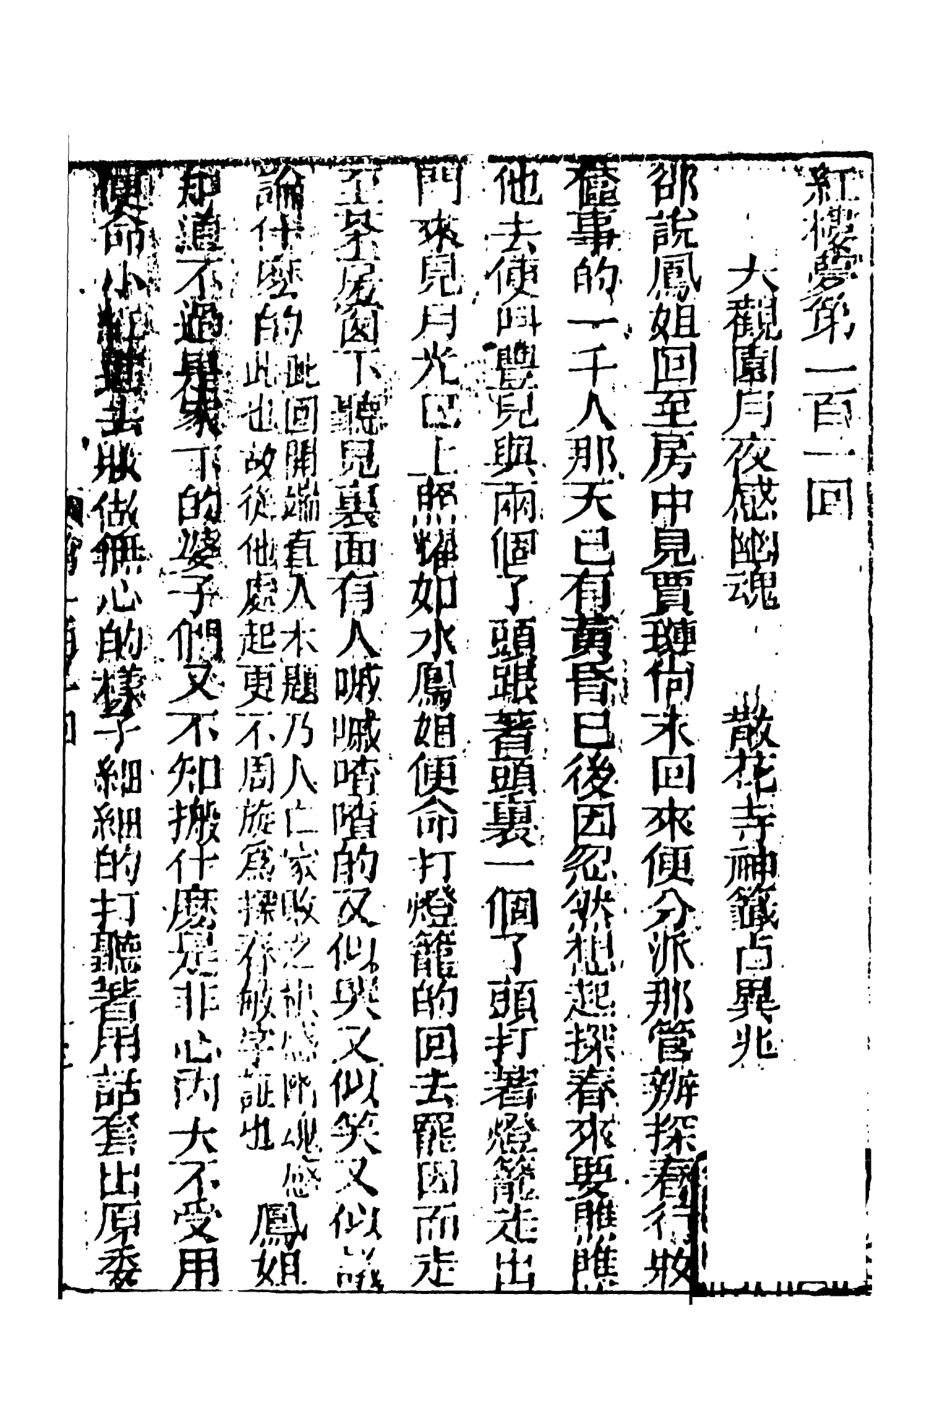 紅樓夢第一百一回
大觀園月夜感幽魂　散花寺神籤占異兆
卻說鳳姐回至房中見賈璉尚未回來便分派那管辦探春行妝
奩事的一千人那天已有黃昏已後因忽然想起探春來要瞧瞧
他去便叫豐兒與兩個丫頭跟著頭裏一個丫頭打著燈籠走出
門來見月光已上照耀如水鳳姐便命打燈籠的回去罷因而走
至茶房窗下聽見裏面有人嘁嘁喳喳的又似哭又似笑又似議
論什麼的此回開端直入本題乃人亡家敗之兆感幽魂感
此也故從他處起更不周旋為探春嫁字証也鳳姐
知道不過是家下的婆子們又不知搬什麼是非心內大不受用
便命小紅進去妝做無心的樣子細細的打聽著用話套出原委